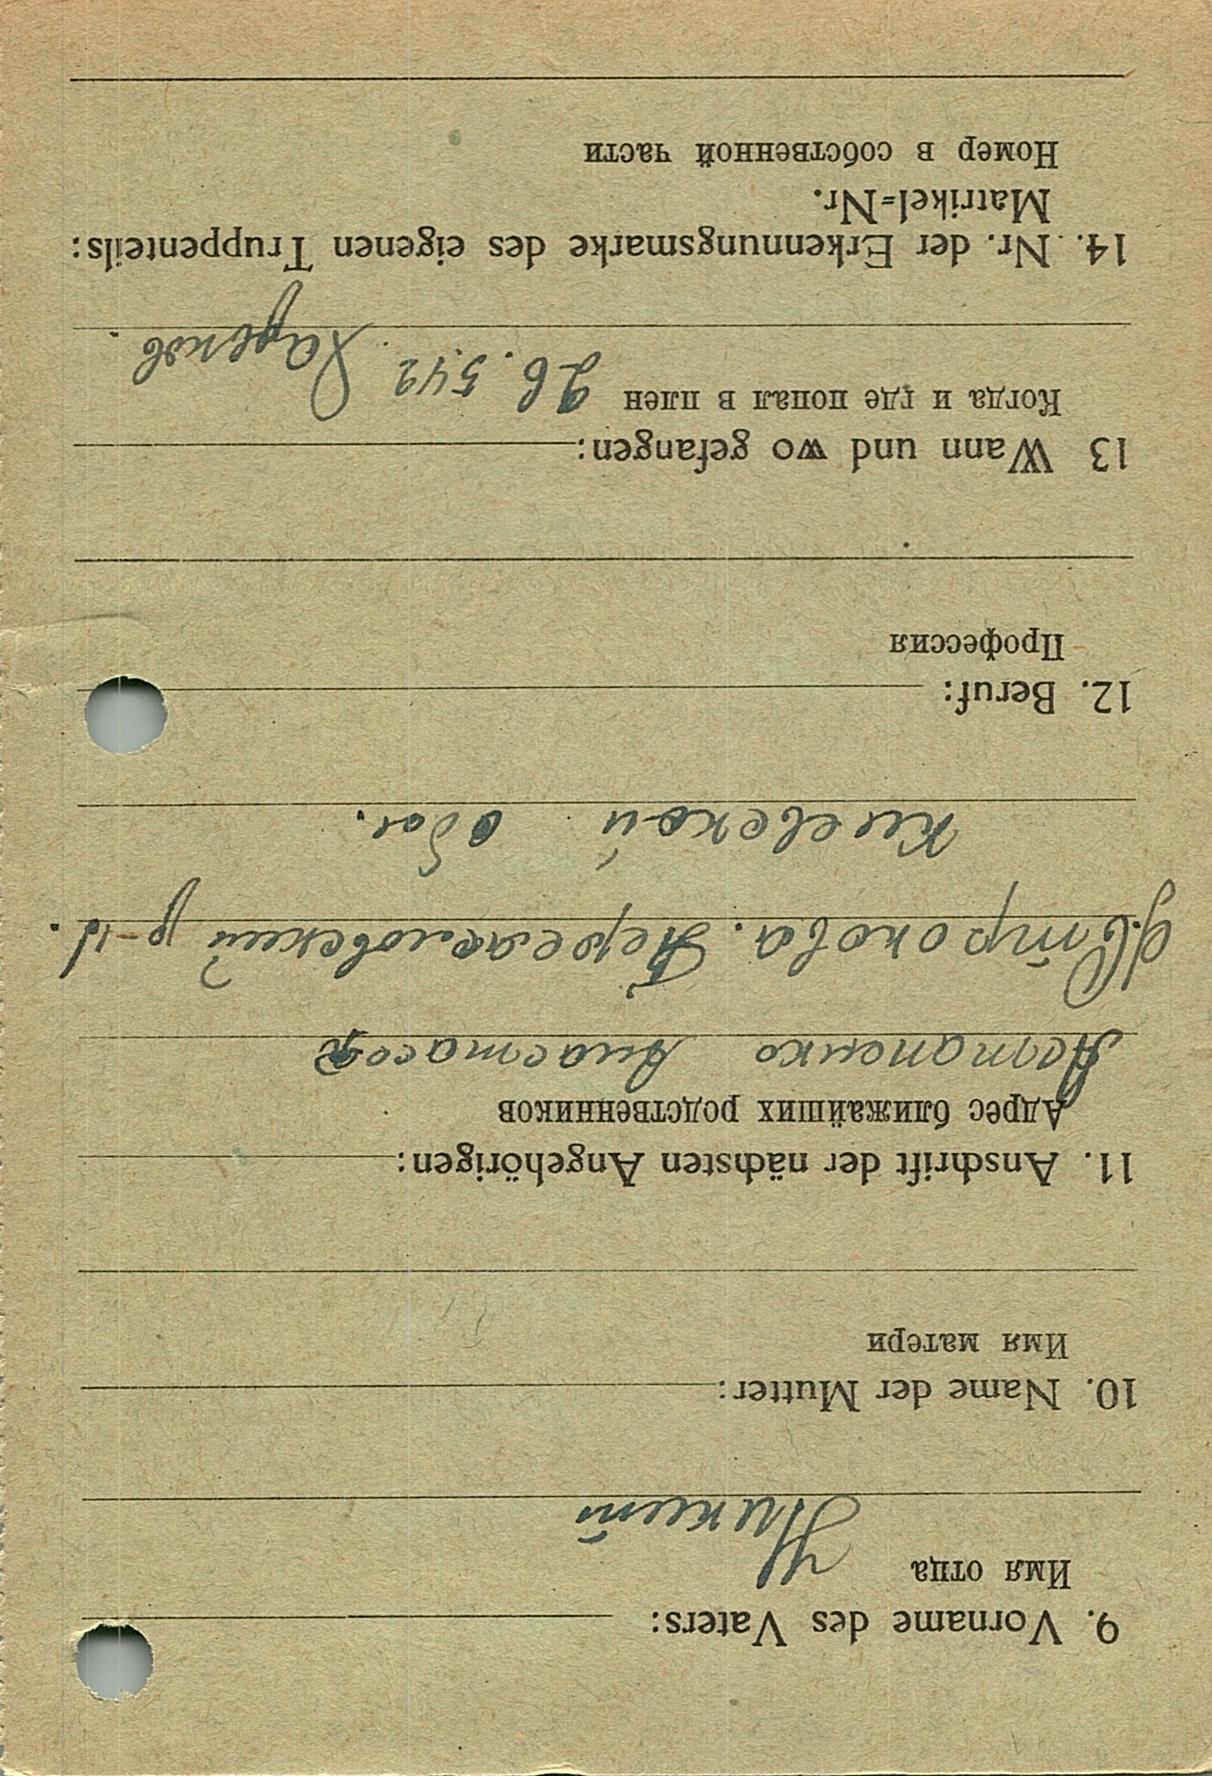 9. Vorname des Vaters:
Имя отца Никит
10. Name der Mutter:
Имя матери
11. Anschrift der nächsten Angehörigen:
Адрес ближайших родственников
Астапенко Анастасоя
д. Строкова. Переясловский р-н.
Киевской обл.
12. Beruf:
Профессия
13 Wann und wo gefangen:
Когда и где попал в плен 26.5.42 Харьков.
14. Nr. der Erkennungsmarke des eigenen Truppenteils:
Matrikel=Nr.
Номер в собственной части